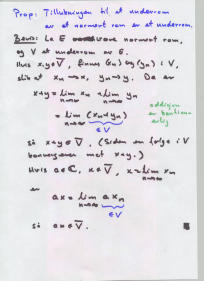 Prop: Tillukningen til et underrom
av et normert rom er et underrom.
Bevis: La E være normert rom,
og V et underrom av E.
Hvis x,y ∈ V̄, finnes (xₙ) og (yₙ) i V,
slik at xₙ → x, yₙ → y. Da er
x+y = lim xₙ + lim yₙ
n→∞ n→∞
= lim (xₙ+yₙ)
n→∞ ∈ V
addisjon
er kontinu-
erlig
så x+y ∈ V̄. (Siden en følge i V
konvergerer mot x+y.)
Hvis a ∈ ℂ, x ∈ V̄, x = lim xₙ
n→∞
er
ax = lim a xₙ
n→∞ ∈ V
så ax ∈ V̄.